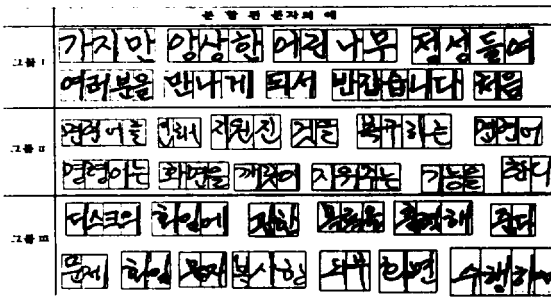 분 할 된 문자의 예
그룹 I
가지만 앙상한 어린 나무 정성들여
여러분을 만나게 되서 반갑습니다 처음
그룹 II
명령어를 지원진 것을 복구하는 명령어
명령어는 화면을 깨끗이 지워주는 기능을 한다
그룹 III
디스크의 화일에 관한 목록을 출력해 준다
문제 화일 문자 복사함 외부 화면 수행하여